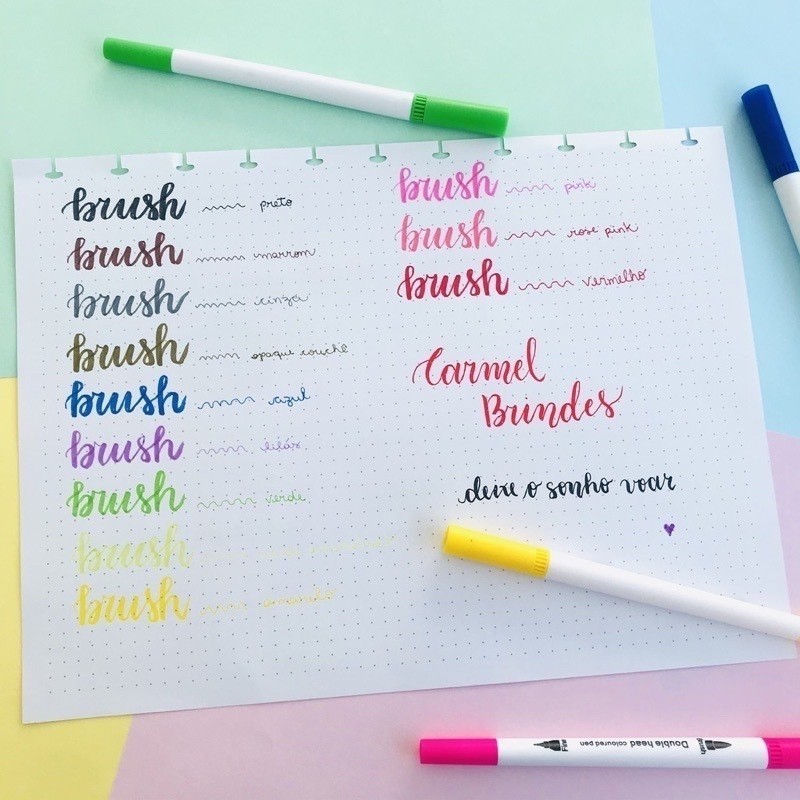 brush preto
brush marrom
brush cinza
brush opaque couché
brush azul
brush lilás
brush verde
brush
brush amarelo
brush pink
brush rose pink
brush vermelho
Carmel
Brindes
deixe o sonho voar
Fine Double head coloured pen Brush